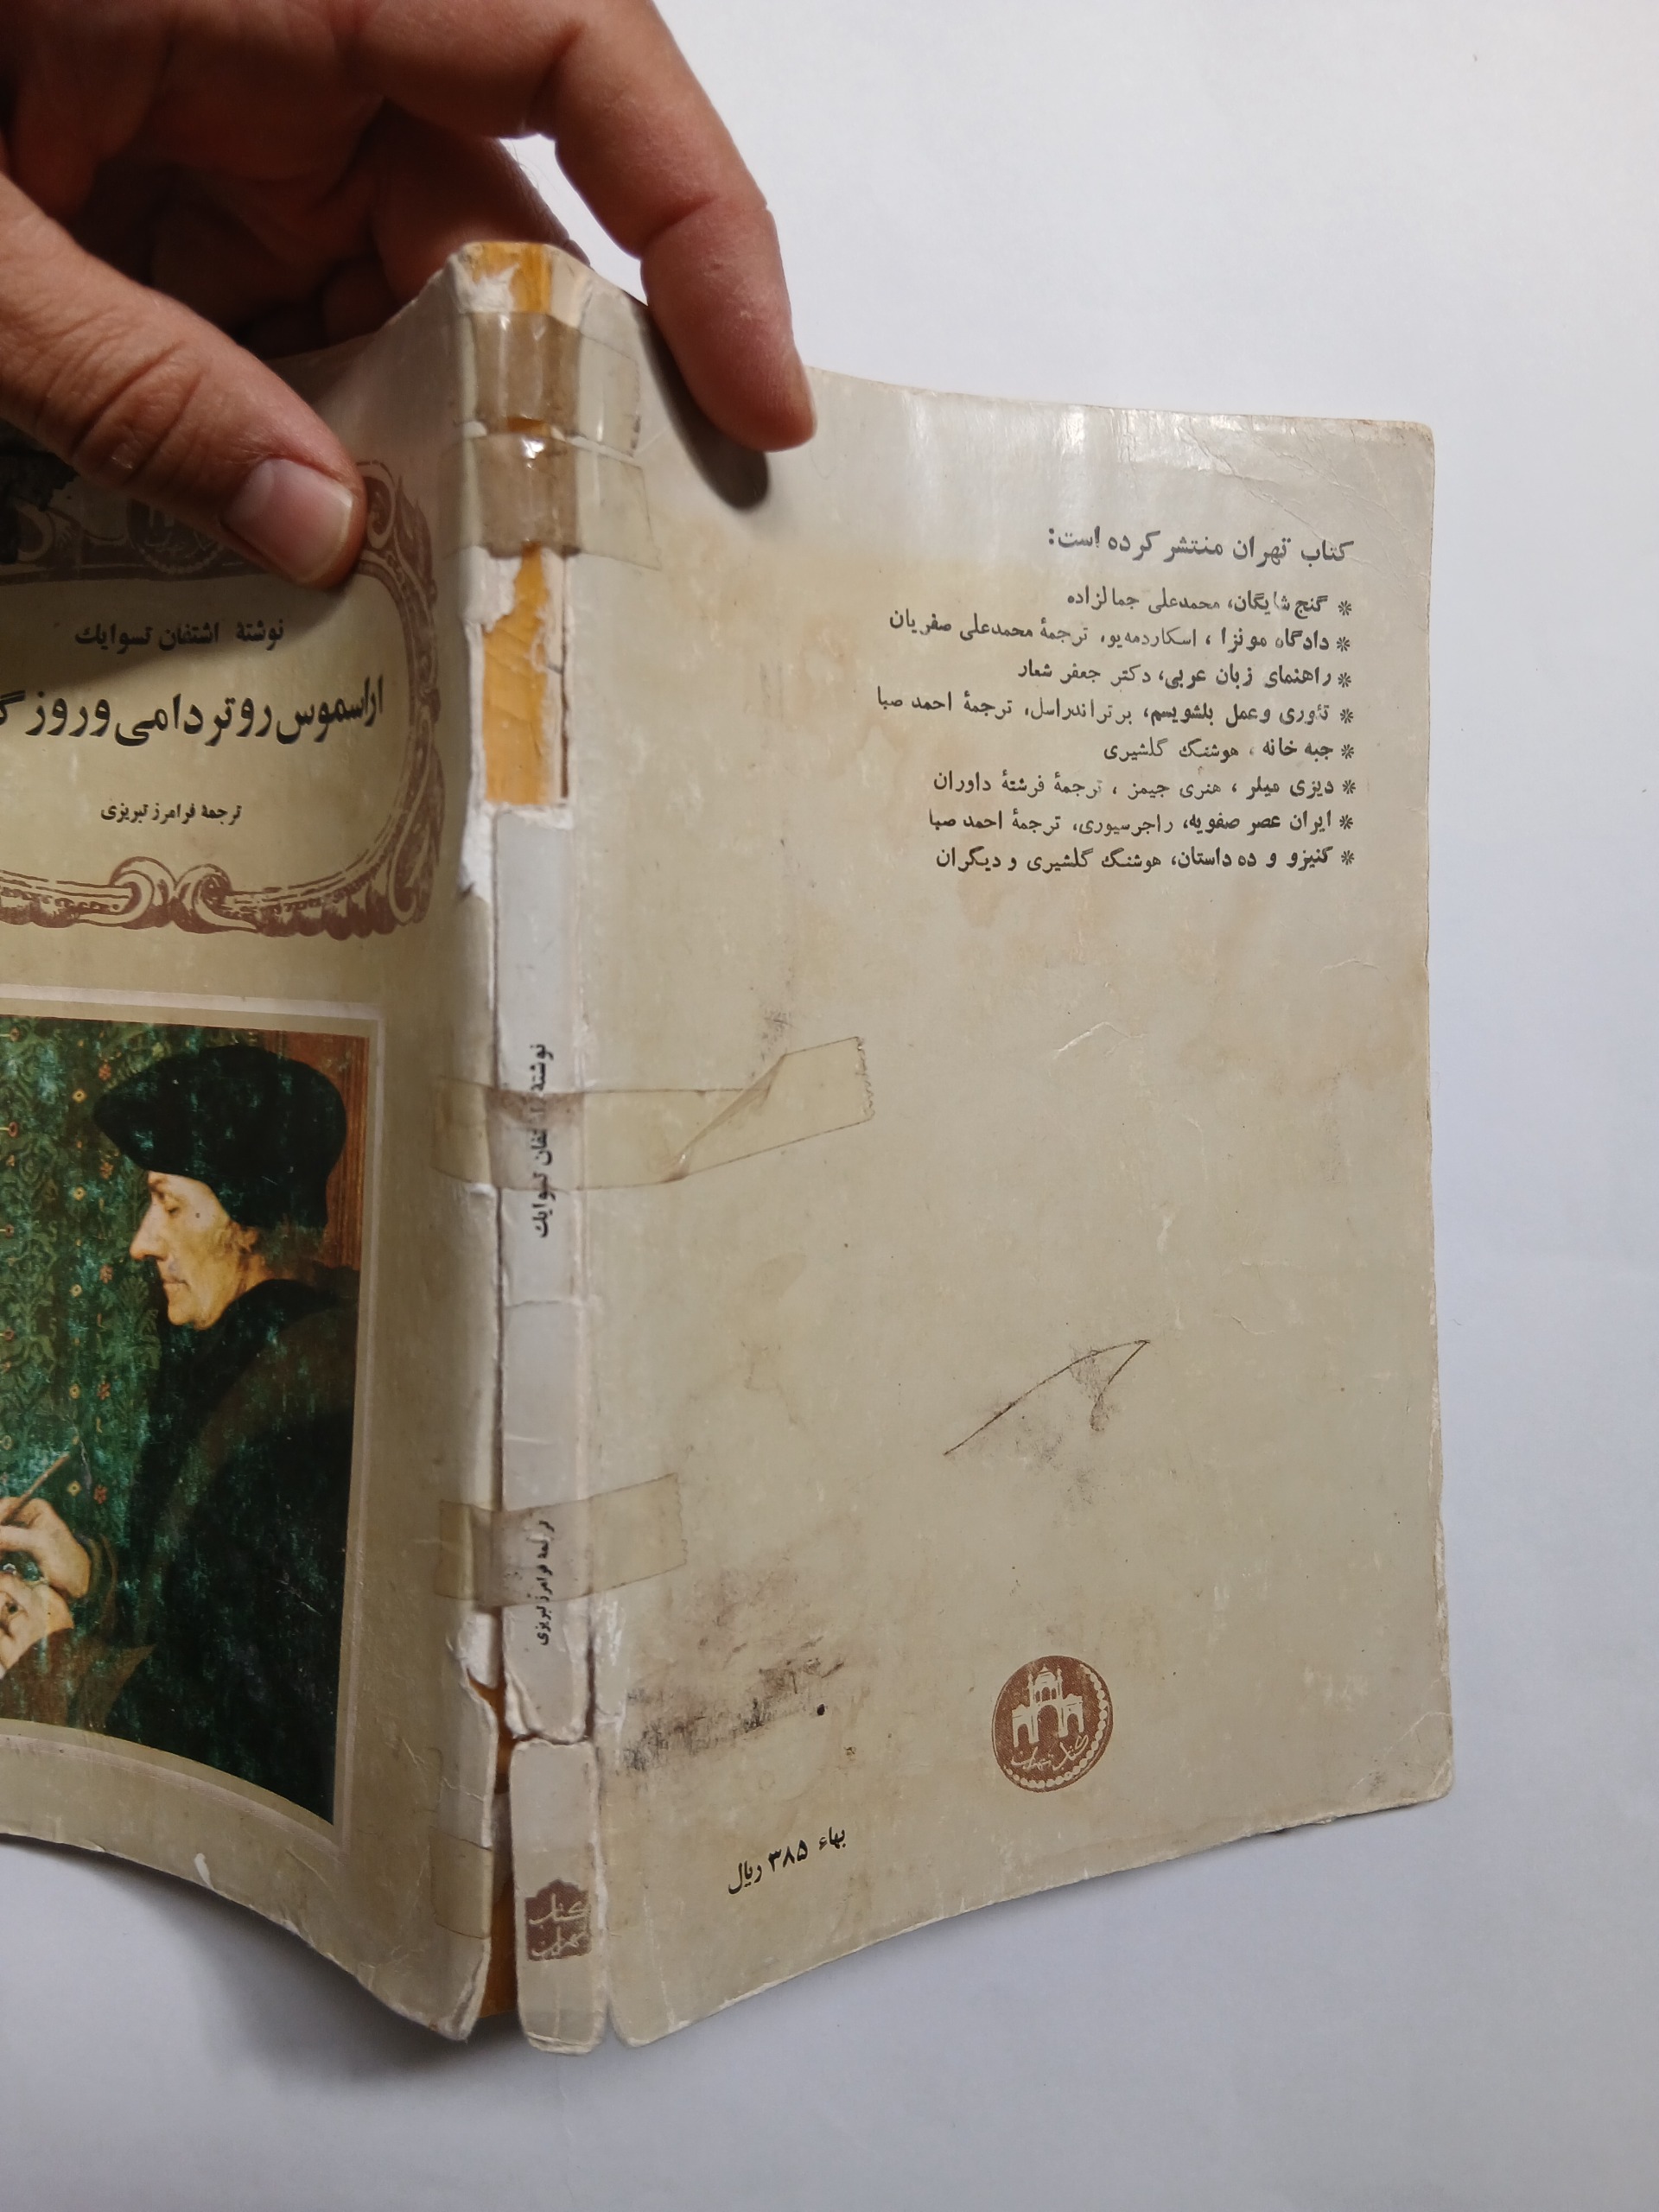 نوشتهٔ اشتفان تسوایك
اراسموس روتردامی و روزگ
ترجمهٔ فرامرز تبریزی
نوشتهٔ تفان تسوایك
فرامرز تبریزی
کتاب تهران
کتاب تهران منتشر کرده است:
* گنج شایگان، محمدعلی جمالزاده
* دادگاه مونزا ، اسکاردمه‌یو، ترجمهٔ محمدعلی صفریان
* راهنمای زبان عربی، دکتر جعفر شعار
* تئوری و عمل بلشویسم، برتراندراسل، ترجمهٔ احمد صبا
* جبه خانه ، هوشنگ گلشیری
* دیزی میلر ، هنری جیمز ، ترجمهٔ فرشتهٔ داوران
* ایران عصر صفویه، راجرسیوری، ترجمهٔ احمد صبا
* کنیزو و ده داستان، هوشنگ گلشیری و دیگران
کتاب تهران
بهاء ۳۸۵ ریال